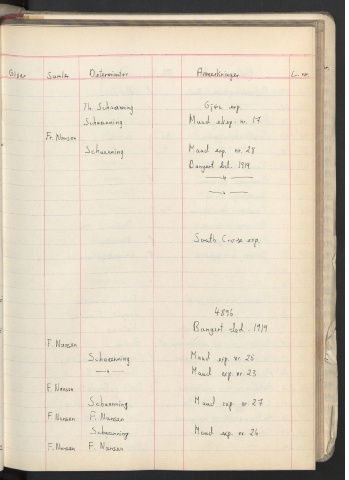 Giver Samler Determinator Anmerkninger L. nr.
Th. Schaanning Gjøa exp.
Schaanning Maud eksp. nr. 17
Fr. Nansen
Schaanning Maud exp. nr. 28
Bangert ded. 1919
— " —
— " —
South Cross exp.
4896
Bangert ded. 1919
F. Nansen
Schaanning Maud exp. nr. 25
— " — Maud exp. nr. 23
F. Nansen
Schaanning Maud exp. nr. 27
F. Nansen F. Nansen
Schaanning Maud exp. nr. 26
F. Nansen F. Nansen